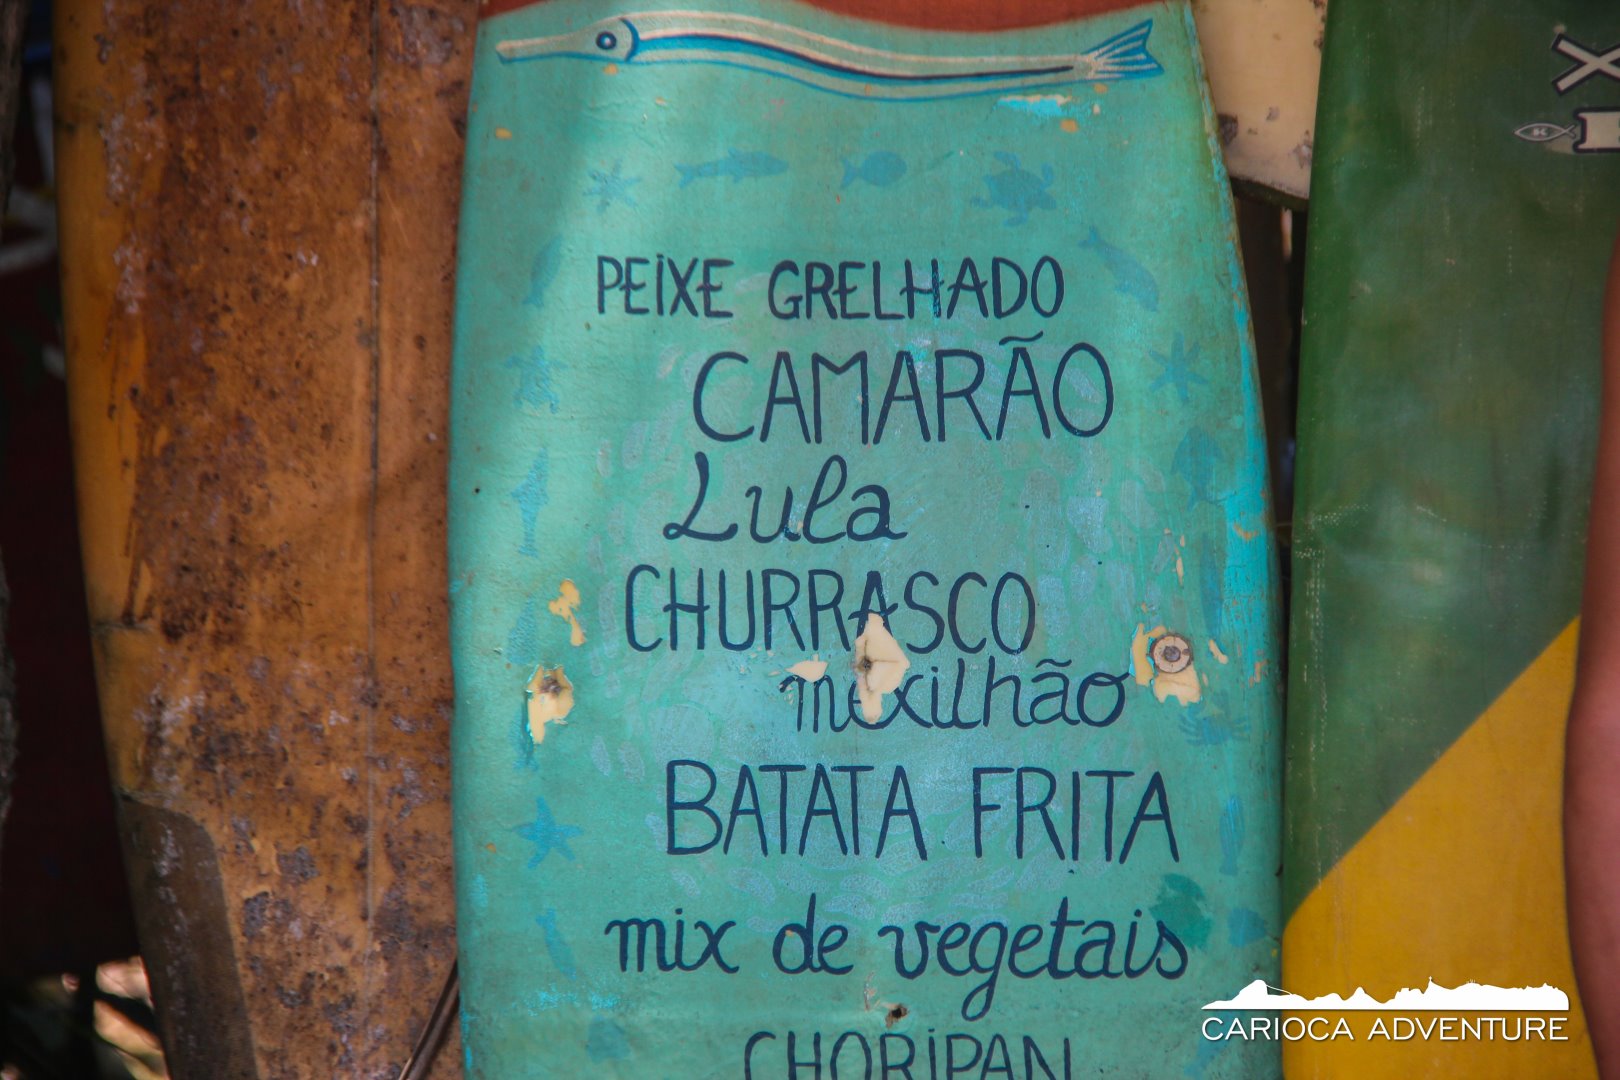 PEIXE GRELHADO
CAMARÃO
Lula
CHURRASCO
mexilhão
BATATA FRITA
mix de vegetais
CHORIPAN
CARIOCA ADVENTURE